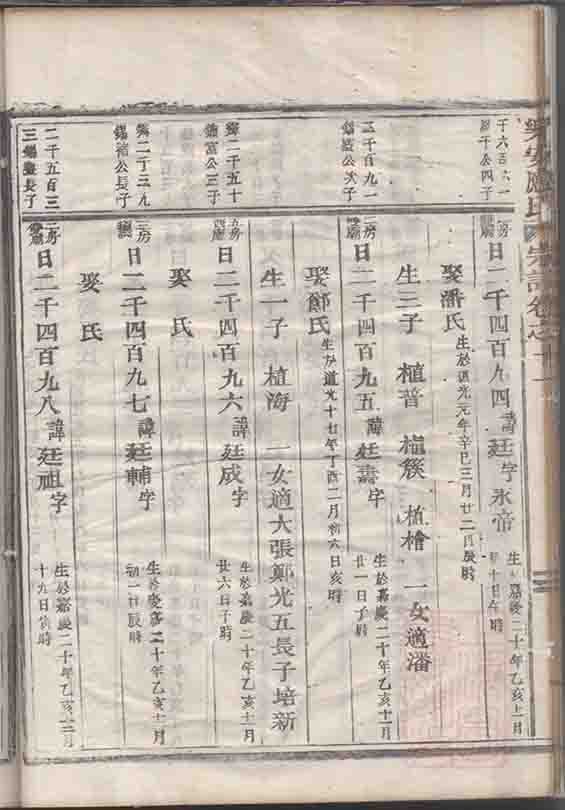 樂安應氏宗譜卷之十一
房 日二千四百九四 諱廷 字永帝 生 嘉慶二十年乙亥十一月 十日午時
娶潘氏 生於道光元年辛巳三月廿二日辰時
生三子 植普 植簇 植檜 一女適潘
三千百九一
公次子
二房 日二千四百九五 諱廷壽 字 生於嘉慶二十年乙亥十一月廿一日子時
娶鄭氏 生於道光十七年丁酉二月初六日亥時
生一子 植海 一女適大張鄭光五長子培新
二千五十
富公三子
房 日二千四百九六 諱廷成 字 生於嘉慶二十年乙亥十一月廿六日子時
娶 氏
二千三九
公長子
三房 日二千四百九七 諱廷輔 字 生於嘉慶二十年乙亥十一月初一日辰時
娶 氏
二千五百三
三錫 長子
二房 日二千四百九八 諱廷祖 字 生於嘉慶二十年乙亥十二月十九日寅時